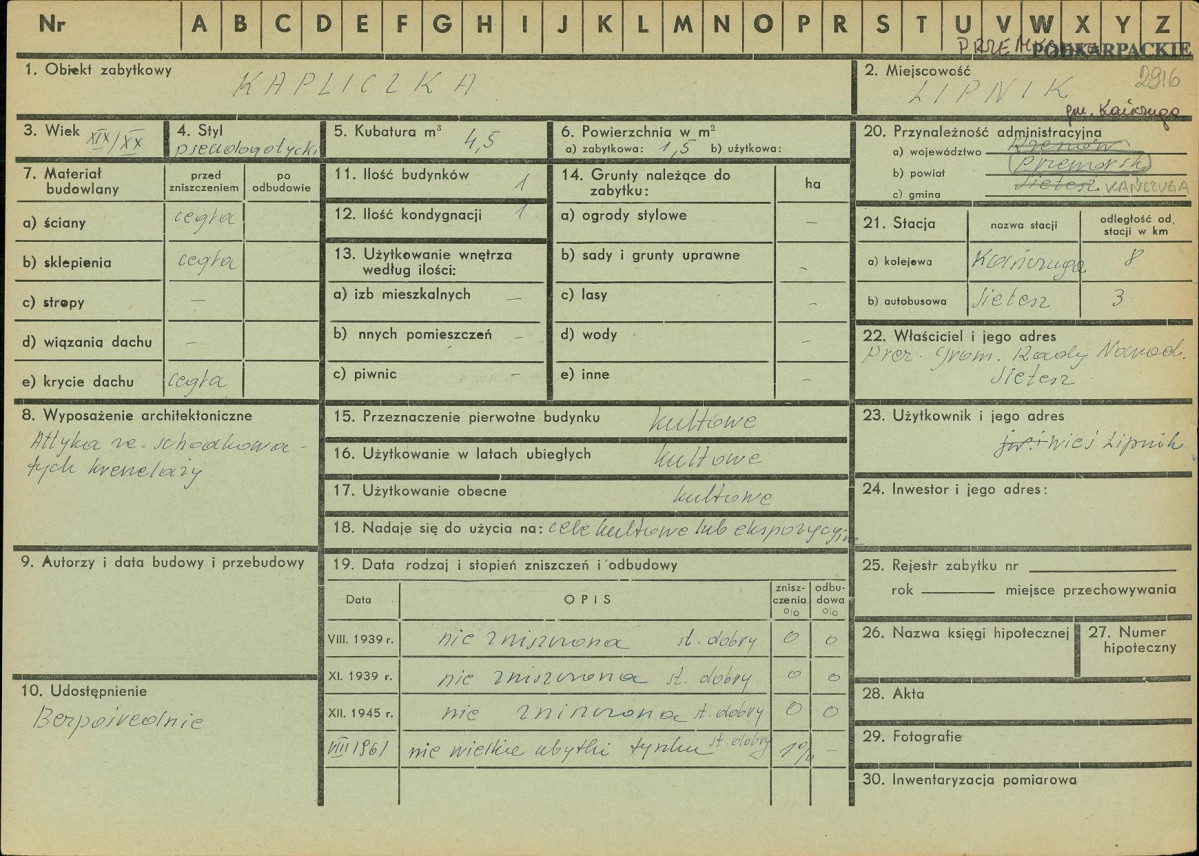 Nr A B C D E F G H I J K L M N O P R S T U V W X Y Z
PODKARPACKIE
1. Obiekt zabytkowy
KAPLICZKA
2. Miejscowość 2916
LIPNIK
gm. Kańczuga
3. Wiek XIX/XX
4. Styl
pseudogotycki
5. Kubatura m³ 4,5
6. Powierzchnia w m²
a) zabytkowa: 1,5 b) użytkowa:
7. Materiał budowlany
przed zniszczeniem
po odbudowie
a) ściany cegła
b) sklepienia cegła
c) stropy –
d) wiązania dachu –
e) krycie dachu cegła
8. Wyposażenie architektoniczne
Attyka ze schodkowa-
tych krenelaży
9. Autorzy i data budowy i przebudowy
10. Udostępnienie
Bezpośrednie
11. Ilość budynków 1
12. Ilość kondygnacji 1
13. Użytkowanie wnętrza
według ilości:
a) izb mieszkalnych –
b) nnych pomieszczeń –
c) piwnic –
14. Grunty należące do
zabytku: ha
a) ogrody stylowe –
b) sady i grunty uprawne –
c) lasy –
d) wody –
e) inne –
15. Przeznaczenie pierwotne budynku kultowe
16. Użytkowanie w latach ubiegłych kultowe
17. Użytkowanie obecne kultowe
18. Nadaje się do użycia na: cele kultowe lub ekspozycyjne
19. Data rodzaj i stopień zniszczeń i odbudowy
Data OPIS znisz-czenia o/o odbu-dowa o/o
VIII. 1939 r. nie zniszczona st. dobry 0 0
XI. 1939 r. nie zniszczona st. dobry 0 0
XII. 1945 r. nie zniszczona st. dobry 0 0
VIII 1961 nie wielkie ubytki tynku st. dobry 1% –
20. Przynależność administracyjna
a) województwo
b) powiat Przeworsk
c) gmina Sietesz KAŃCZUGA
21. Stacja nazwa stacji odległość od stacji w km
a) kolejowa Kańczuga 8
b) autobusowa Sietesz 3
22. Właściciel i jego adres
Prez. Grom. Rady Narod.
Sietesz
23. Użytkownik i jego adres
wieś Lipnik
24. Inwestor i jego adres:
25. Rejestr zabytku nr
rok miejsce przechowywania
26. Nazwa księgi hipotecznej
27. Numer
hipoteczny
28. Akta
29. Fotografie
30. Inwentaryzacja pomiarowa